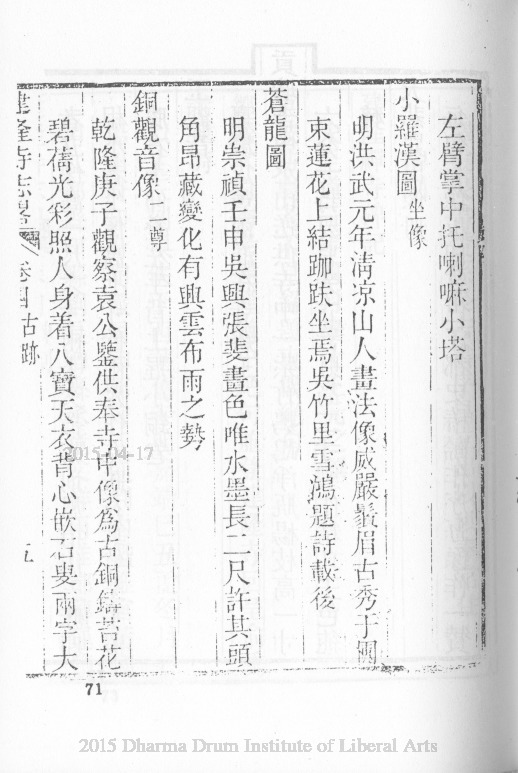 左臂掌中托喇嘛小塔
小羅漢圖坐像
明洪武元年清凉山人畫法像威嚴鬚眉古秀于圍
束蓮花上結跏趺坐焉吳竹里雪鴻題詩載後
蒼龍圖
明崇禎壬申吳興張斐畫色唯水墨長二尺許其頭
角昂藏變化有興雲布雨之勢
銅觀音像二尊
乾隆庚子觀察袁公鑒供奉寺中像爲古銅鑄苔花
碧蒨光彩照人身着八寶天衣背心嵌石叟兩字大
建隆寺志畧 卷四 古跡 五
71
2015-04-17
2015 Dharma Drum Institute of Liberal Arts